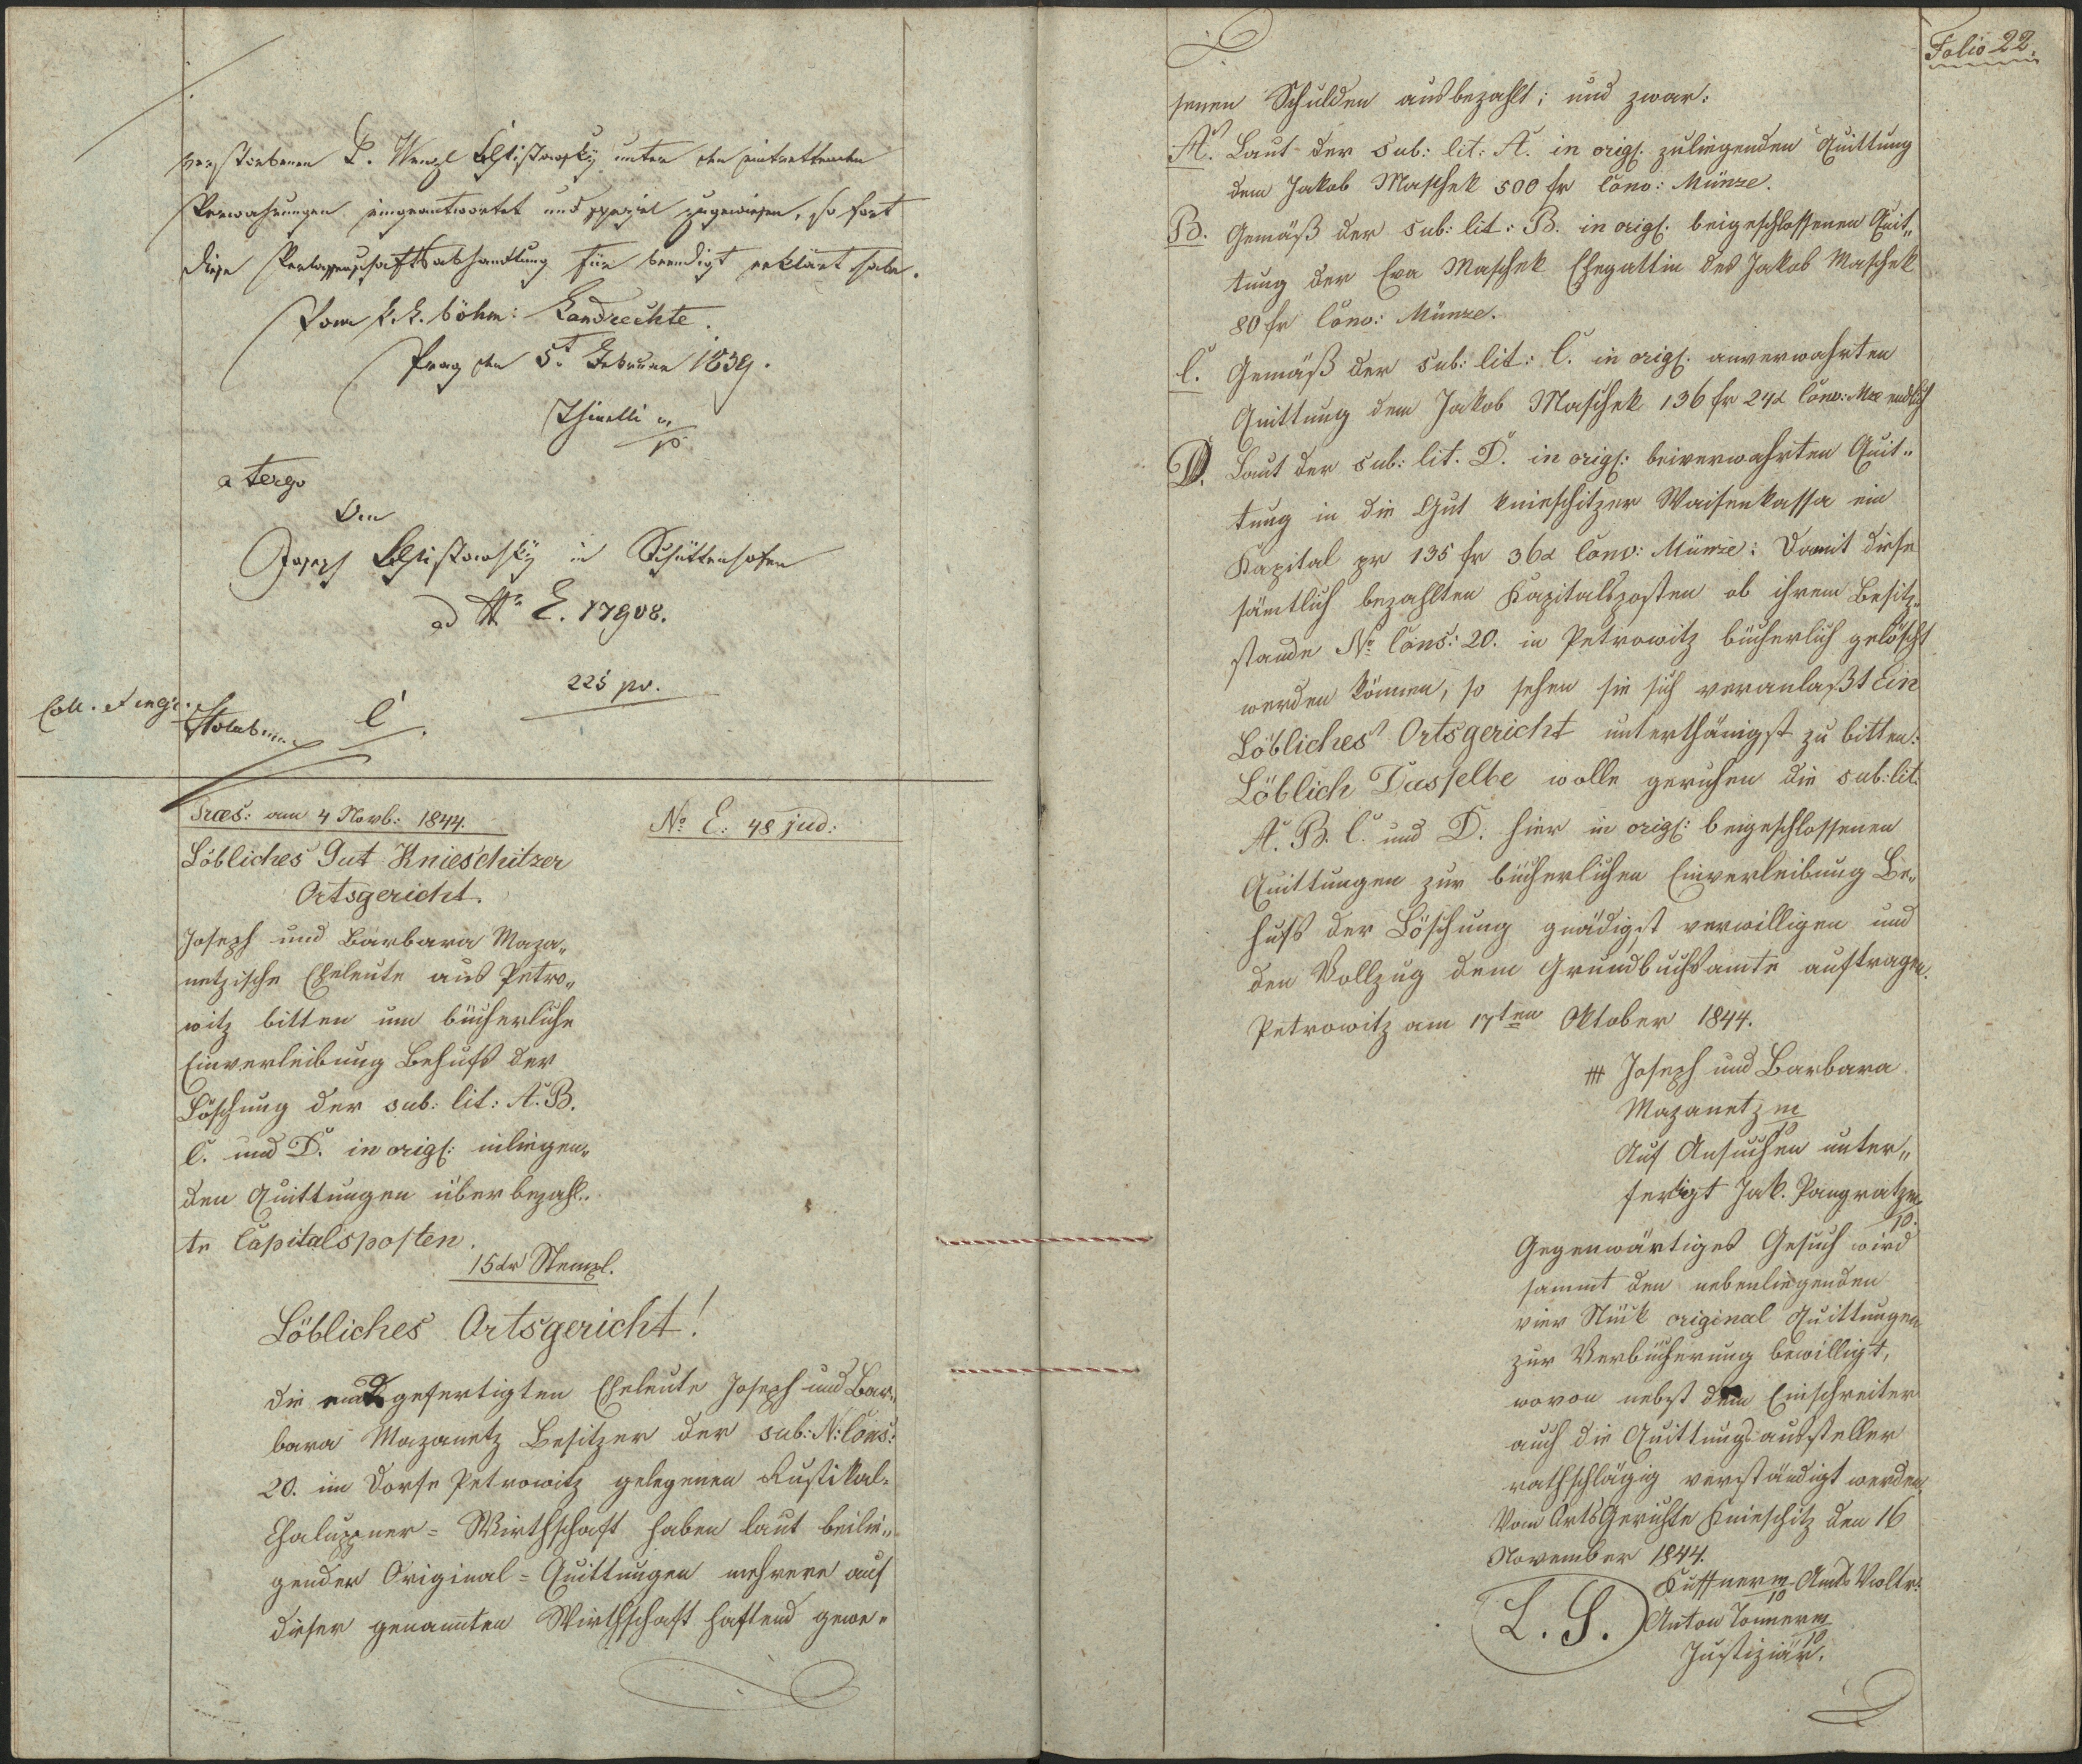 verstorbenen P. Wenzl unter den eintrettenden
Verwahrungen eingeantwortet und speziel zugewiesen, so fort
diese Verlassenschaftsabhandlung für beendigt erklärt habe.
Vom k. k. böhm: Landrechte.
Prag den 5t Februar 1839.
a tergo
Den
Joseph in Schüttenhofen
ad No E. 17908.
225 pr.
Coll. et ingr.
C.
Præs: am 4 Novb: 1844.
No E: 48 jud:
Löbliches Gut Knieschitzer
Ortsgericht.
Joseph und Barbara Maza„
netzische Eheleute aus Petro„
witz bitten um bücherliche
Einverleibung Behufs der
Löschung der sub: lit: A. B.
C. und D. in origl: inliegen„
den Quittungen über bezahl„
te Capitalsposten.
15 kr Stempl.
Löbliches Ortsgericht!
Die endsgefertigten Eheleute Joseph und Bar„
bara Mazanetz Besitzer der sub: N: Cons:
20. im Dorfe Petrowitz gelegenen Rustikal-
Chaluppner = Wirthschaft haben laut beilie„
gender Original = Quittungen mehrere auf
dieser genannten Wirthschaft haftend gewe=
Folio 22.
senen Schulden ausbezahlt; und zwar:
A. Laut der sub: lit: A. in origl. zuliegenden Quittung
dem Jakob Maschek 500 fr Conv: Münze.
B. Gemäß der sub: lit: B. in origl. beigeschlossenen Quit„
tung der Eva Maschek Ehegattin des Jakob Maschek
80 fr Conv: Münze.
C. Gemäß der sub: lit: C. in origl. anverwahrten
Quittung dem Jakob Maschek 136 fr 24x Conv: Mze endlich
D. Laut der sub: lit. D. in origl: beiverwahrten Quit„
tung in die Gut knieschitzer Waisenkassa ein
Kapital pr 135 fr 36x Conv: Münze: Damit diese
sämtlich bezahlten Kapitalsposten ob ihrem Besitz„
stande No Cons: 20. in Petrowitz bücherlich gelöscht
werden können, so sehen sie sich veranlaßt Ein
Löbliches Ortsgericht unterthänigst zu bitten:
Löblich Dasselbe wolle geruhen die sub: lit:
A. B. C. und D. hier in origl: beigeschlossenen
Quittungen zur bücherlichen Einverleibung Be„
hufs der Löschung gnädigst verwilligen und
den Vollzug dem Grundbuchsamte auftragen.
Petrowitz am 17ten Oktober 1844.
+++ Joseph und Barbara
Mazanetz m/p
Auf Ansuchen unter„
fertigt Jak. Pangratz m/p.
Gegenwärtiges Gesuch wird
sammt den nebenliegenden
vier Stück original Quittungen
zur Verbücherung bewilligt,
wovon nebst dem Einschreiter
auch die Quittungsaussteller
rathschlägig verständigt werden.
Vom Orts Gerichte Knieschitz den 16
November 1844.
L. S.
Kuffner m/p Amts Vwltr:
Anton Tonner m/p
Justiziär.